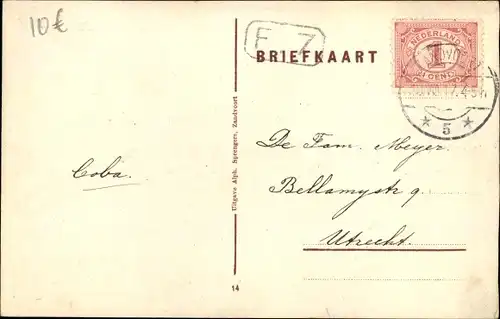 10€
F Z
BRIEFKAART
NEDERLAND
1
1 CENT
5
Coba.
Uitgave Alph. Sprengers, Zandvoort
De Fam. Meyer.
Bellamystr 9.
Utrecht.
14